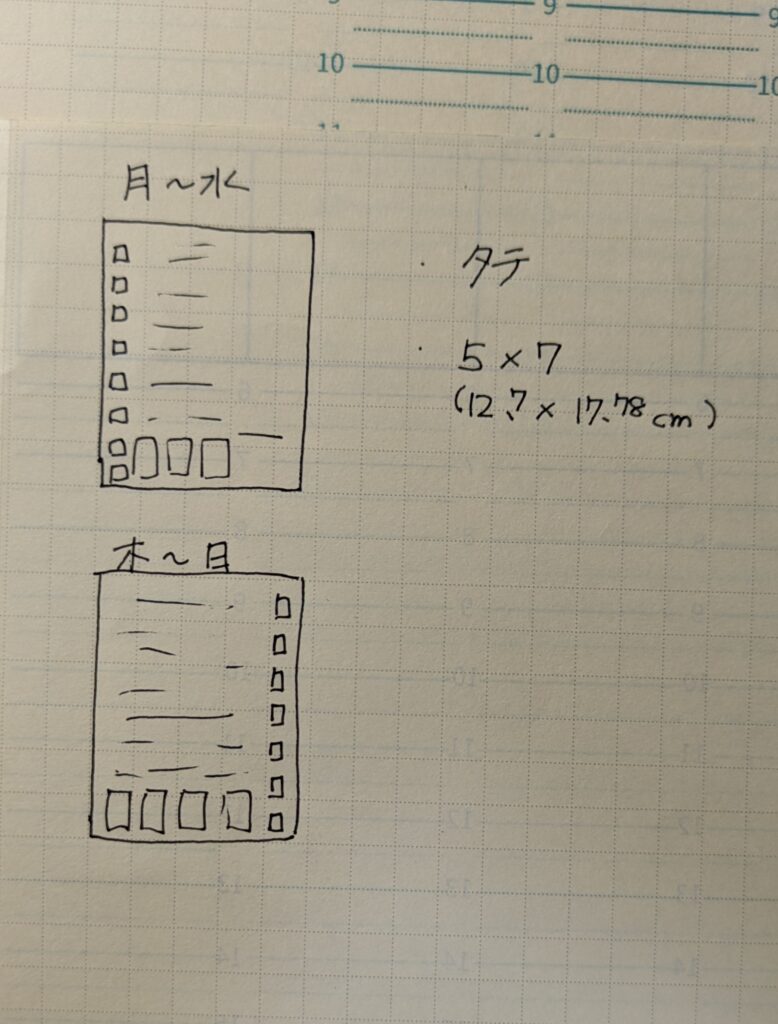 9 9 9
10 10 10
月～水
・タテ
・5×7
(12.7×17.78cm)
木～日